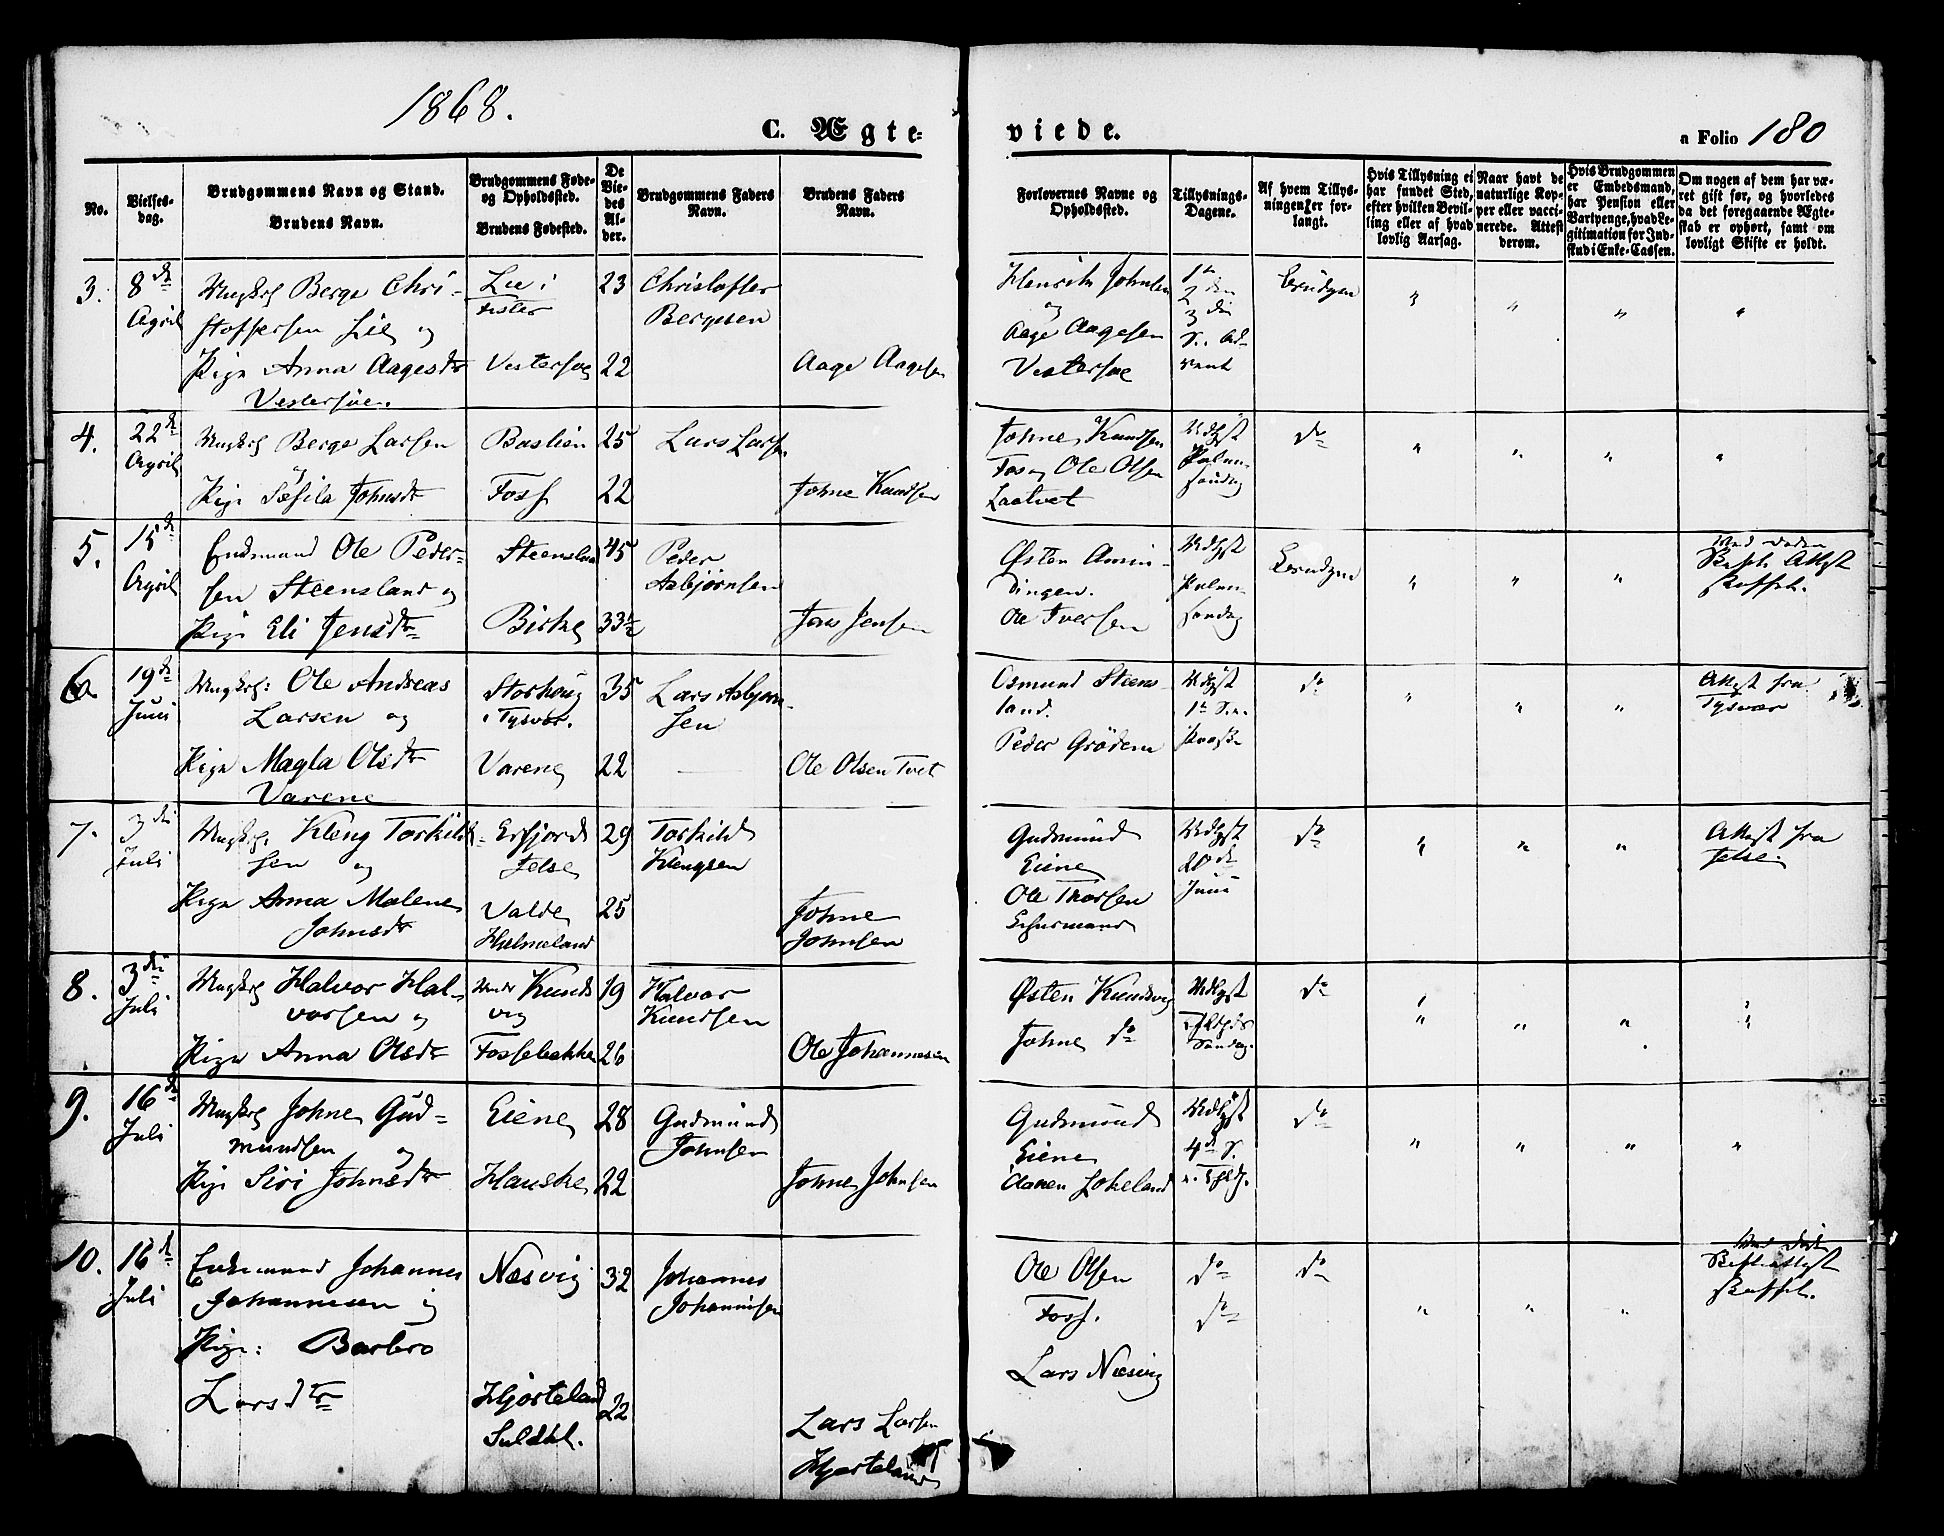 1868.
C. Ægte-
viede.
a Folio 180
No.
Vielses-
dag.
Brudgommens Navn og Stand.
Brudens Navn.
Brudgommens Føde-
og Opholdssted.
Brudens Fødested.
De
Vie-
des
Al-
der.
Brudgommens Faders
Navn.
Brudens Faders
Navn.
Forlovernes Navne og
Opholdssted.
Tillysnings-
Dagene.
Af hvem Tillys-
ningen er for-
langt.
Hvis Tillysning ei
har fundet Sted,
efter hvilken Bevil-
ling eller af hvad
lovlig Aarsag.
Naar havt de
naturlige Kop-
per eller vacci-
nerede. Attest
derom.
Hvis Brudgommen
er Embedsmand,
har Pension eller
Vartpenge, hvad Le-
gitimation for Ind-
skud i Enke-Cassen.
Om nogen af dem har væ-
ret gift før, og hvorledes
da det foregaaende Ægte-
skab er ophørt, samt om
lovligt Skifte er holdt.
3.
8de
April
Ungkrl Berge Chri-
stoffersen Lie og
Pige Anna Aagesdtr
Vestersøe.
Lie i
Vestersøe
23
22
Christoffer
Bergesen
Aage Aagesen
Henrik Johnsen
og
Aage Aagesen
Vestersøe
1te
2den
3die
S. Ad-
vent
Brudgen
" " " "
4.
22de
April
Ungkrl Berge Larsen
og
Pige Sæsila Johnsdtr
Bastlien
Foss
25
22
Lars Larsen
Johne Knudsen
Johne Knudsen
Fos og Ole Olsen
Laatvet
Udlyst
Palme-
søndag
do
" " " "
5.
15de
April
Enkemand Ole Peder-
sen Steensland og
Pige Eli Jensdtr
Steensland
Birke
45
33½
Peder
Asbjørnsen
Jens Jensen
Østen Amin-
dingen.
Ole Iversen
Udlyst
Palme-
søndag
Brudgen
" " "
Med Døden
Skifte Attest
6.
19de
Juni
Ungkrl: Ole Andreas
Larsen og
Pige Magla Olsdtr
Varene
Storhoug
i Tysvær.
Varene
35
22
Lars Asbjørn-
sen
Ole Olsen Tvet
Osmund Steens-
land.
Peder Grødem
Udlyst
1te S.
do
" " "
Attest fra
Tysvær
7.
3die
Juli
Ungkrl, Kleng Torkild-
sen og
Pige Anna Malene
Johnsdtr
Erfjord
Jelse
Valde
Hjelmeland
29
25
Torkild
Klengsen
Johne
Johnsen
Gudmund
Eiene
Ole Thorsen
Udlyst
20de
Juni
do
" " "
Attest fra
Jelse
8.
3die
Juli
Ungkrl Halvor Hal-
vorsen og
Pige Anna Olsdtr
Knuds
vig
Fossebakke
19
26
Halvor
Knudsen
Ole Johannesen
Østen Knudsvig
Johne do
Udlyst
Søndag.
do
" " " "
9.
16de
Juli
Ungkrl Johne Gud-
mundsen og
Pige Siri Johnsdtr
Eiene
Hauske
28
22
Gudmund
Johnsen
Johne Johnsen
Gudmund
Eiene
Aanen Lokeland
Udlyst
4de S.
do
" " " "
10.
16de
Juli
Enkemand Johannes
Johannesen og
Pige: Barbro
Larsdtr
Næsvig
Hjorteland
Suldal.
32
22
Johannes
Johannesen
Lars Larsen
Hjorteland
Ole Olsen
Foss.
Lars Næsvig
do
do
do
" " "
Med Død